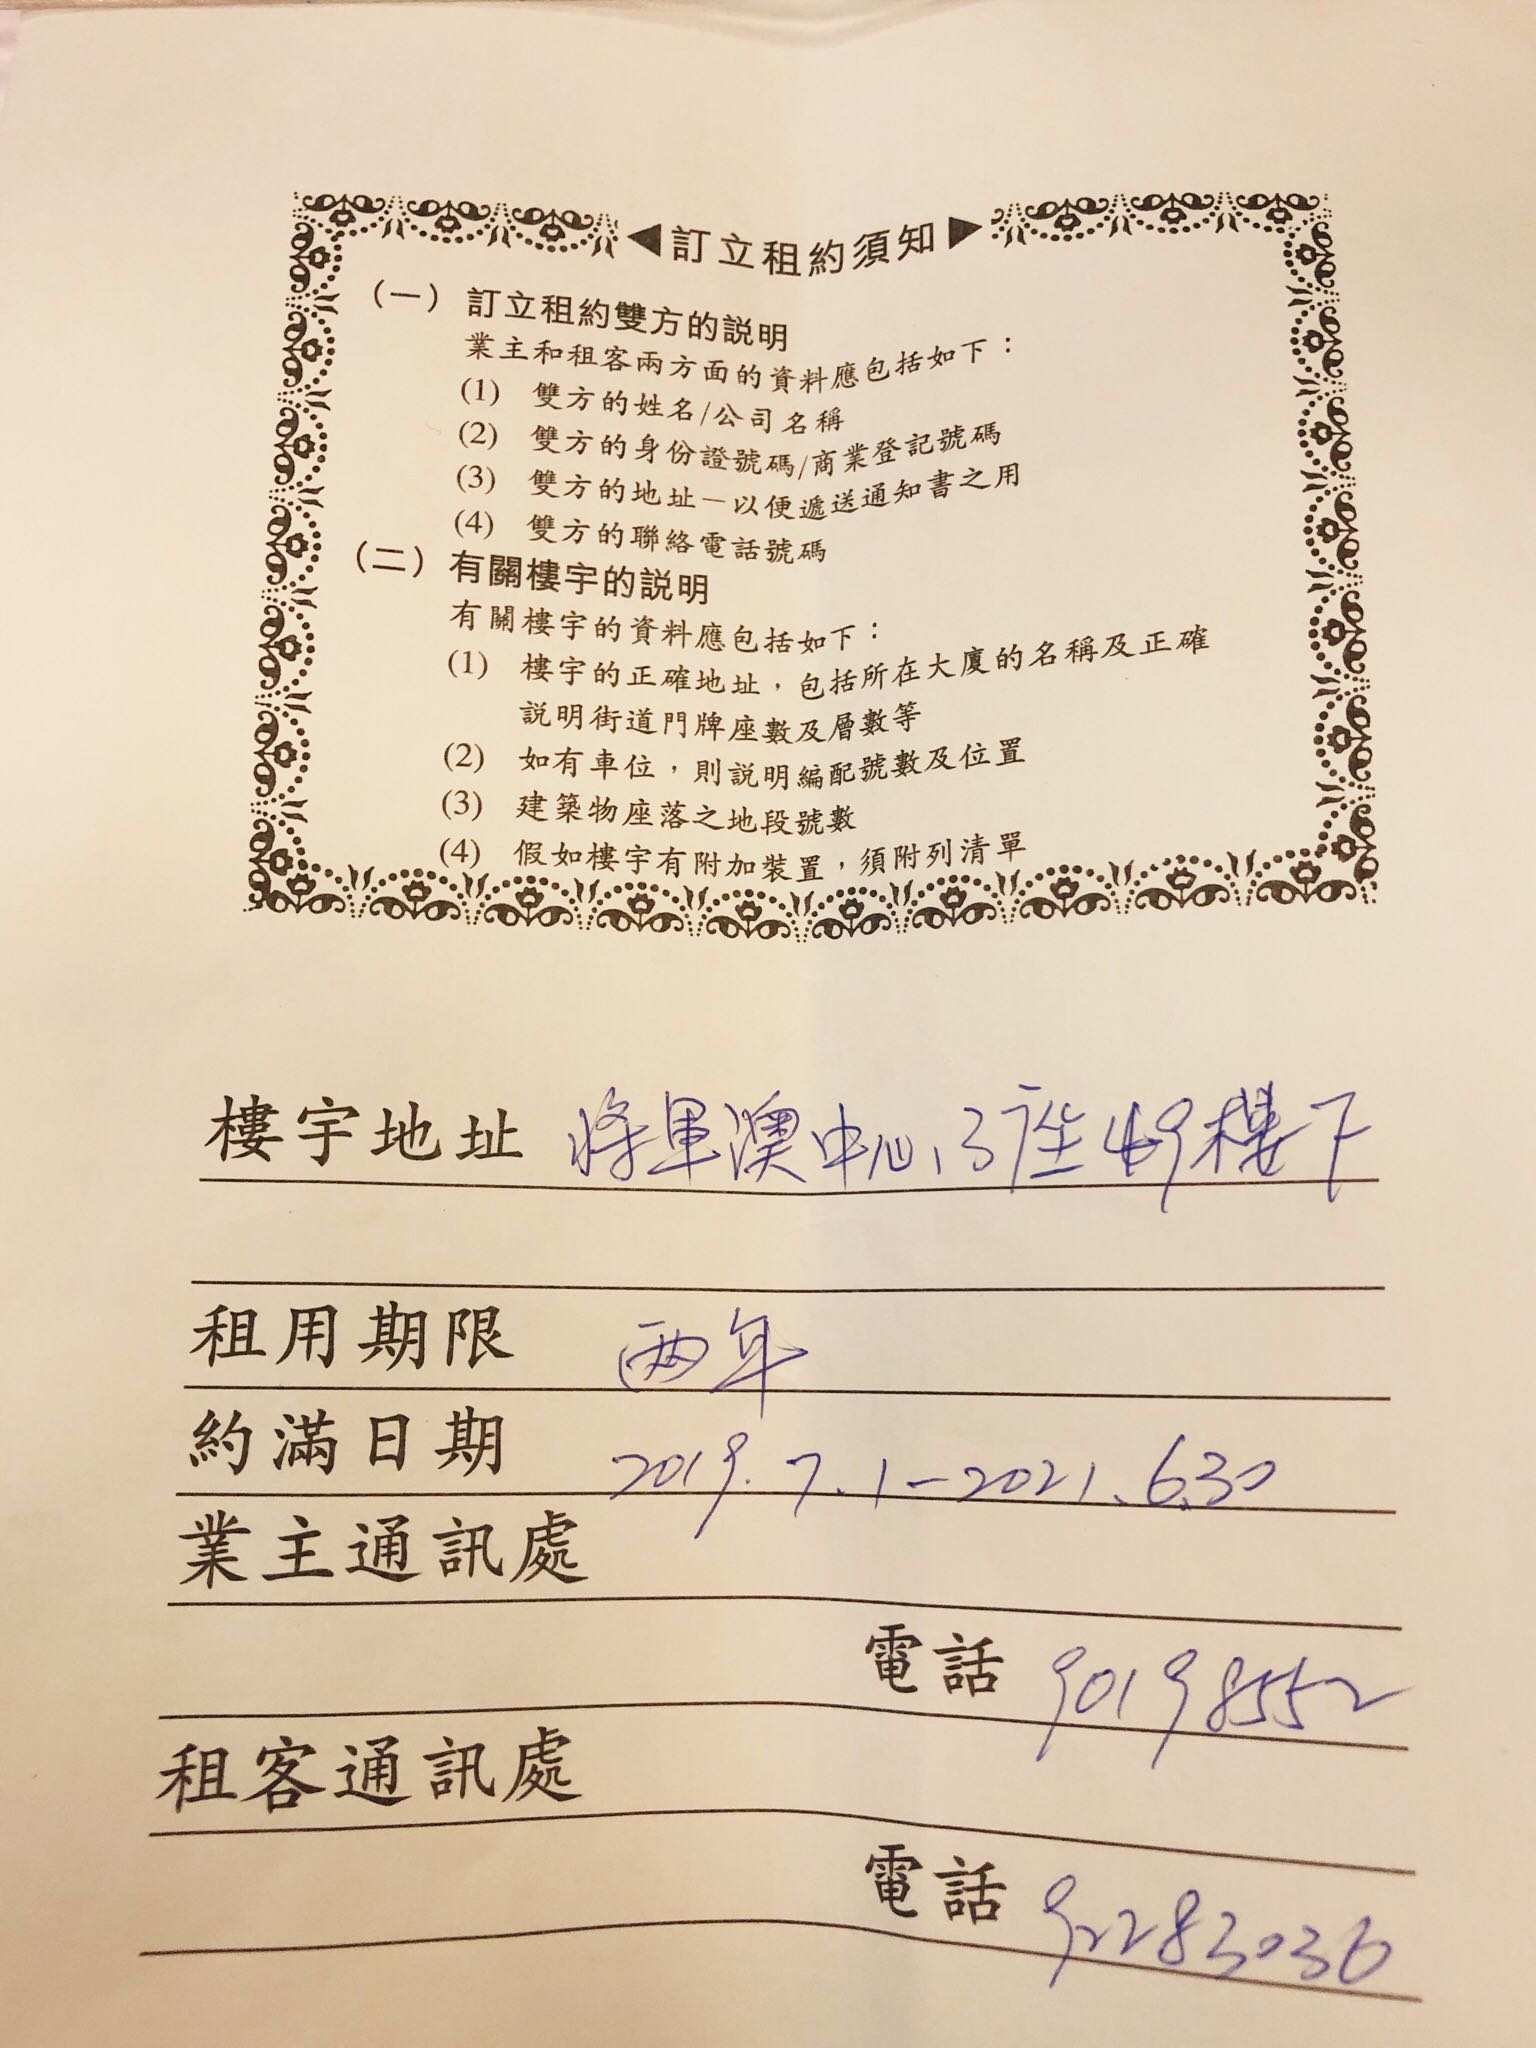 ◀訂立租約須知▶
(一) 訂立租約雙方的說明
業主和租客兩方面的資料應包括如下：
(1) 雙方的姓名/公司名稱
(2) 雙方的身份證號碼/商業登記號碼
(3) 雙方的地址－以便遞送通知書之用
(4) 雙方的聯絡電話號碼
(二) 有關樓宇的說明
有關樓宇的資料應包括如下：
(1) 樓宇的正確地址，包括所在大廈的名稱及正確
說明街道門牌座數及層數等
(2) 如有車位，則說明編配號數及位置
(3) 建築物座落之地段號數
(4) 假如樓宇有附加裝置，須附列清單
樓宇地址 將軍澳中心13座49樓下
租用期限 两年
約滿日期 2019.7.1-2021.6.30
業主通訊處
電話 90198552
租客通訊處
電話 92283036